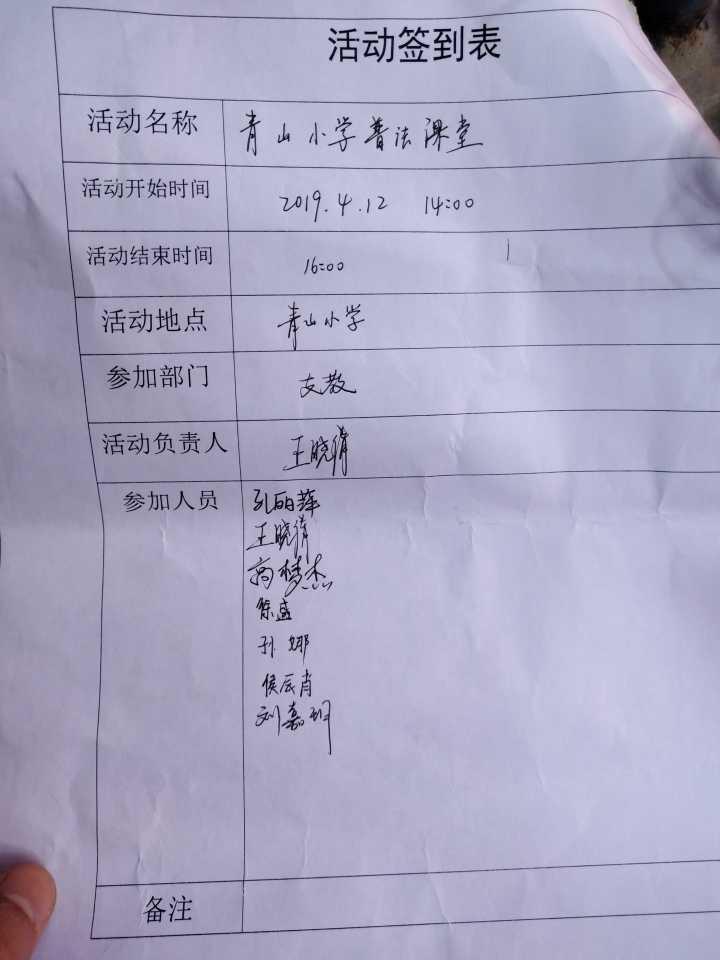 活动签到表
活动名称 青山小学普法课堂
活动开始时间 2019.4.12 14:00
活动结束时间 16:00
活动地点 青山小学
参加部门 支教
活动负责人 王晓倩
参加人员 孔丽萍
王晓倩
高梦杰
徐盛
孙娜
侯辰肖
刘嘉
备注